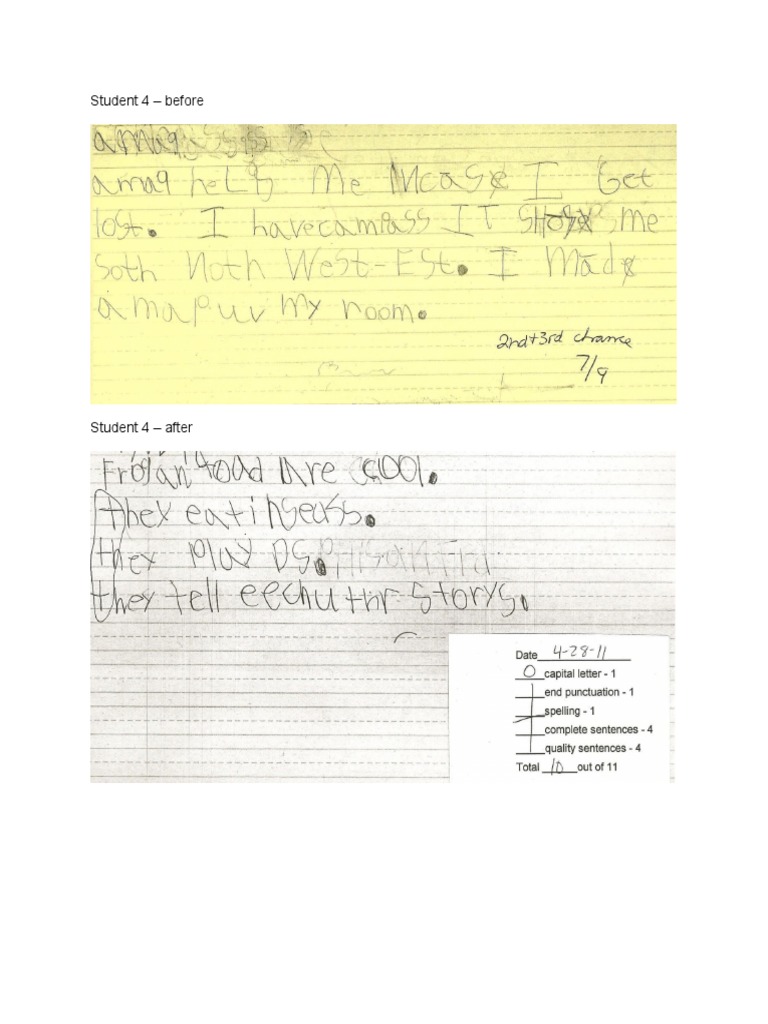 Student 4 – before
amaq
amaq help Me Incase I Get
lost. I have campass IT SHows me
soth Noth West-Est. I Made
a mapuv my room.
2nd+3rd chance
7/9
Student 4 – after
Frogan toad are cool.
they eat inseuss.
they play DS.
they tell eechuthr storys.
Date 4-28-11
0 capital letter - 1
end punctuation - 1
spelling - 1
complete sentences - 4
quality sentences - 4
Total 10 out of 11